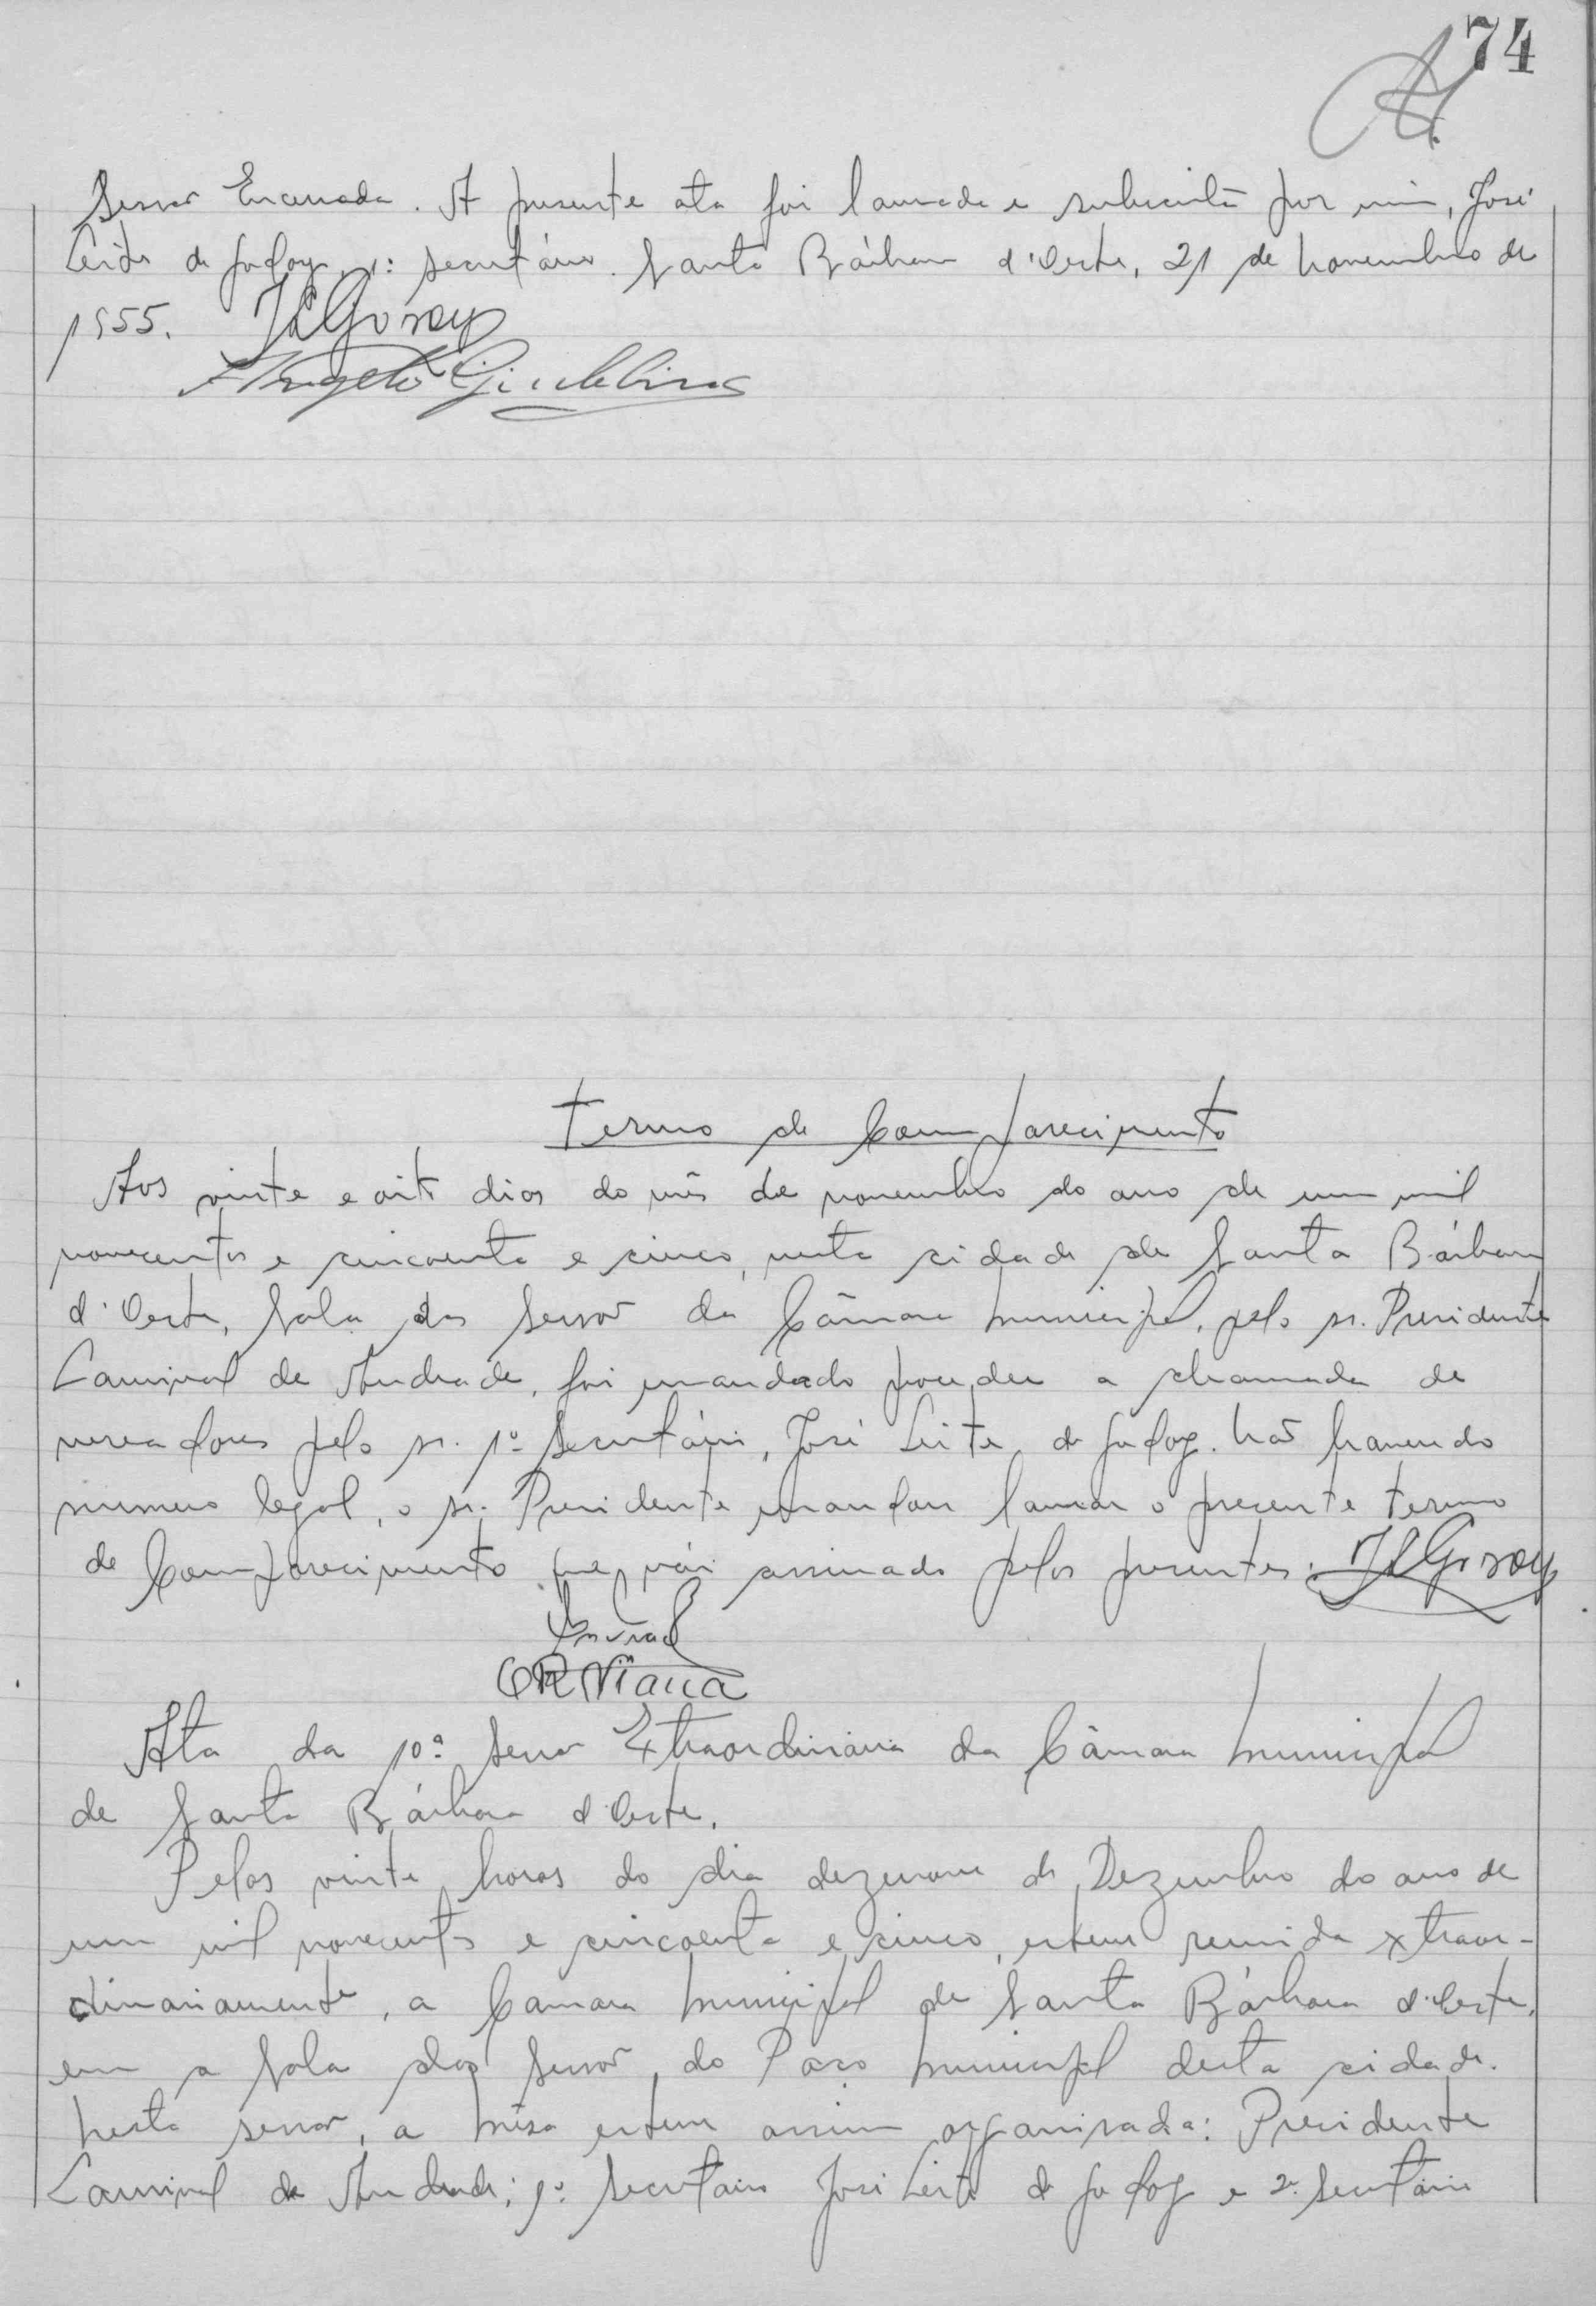 74
Sessão Encerrada. A presente ata foi lavrada e subscrita por mim, José
Leite de Godoy, 1º secretário. Santa Bárbara d'Oeste, 21 de novembro de
1955. JLGodoy
Angelo Giubbina
Termo de Comparecimento
Aos vinte e oito dias do mês de novembro do ano de um mil
novecentos e cincoenta e cinco, nesta cidade de Santa Bárbara
d'Oeste, Sala das Sessões da Câmara Municipal, pelo sr. Presidente
de Andrade, foi mandado proceder a chamada de
vereadores pelo sr. 1º Secretário, José Leite de Godoy. Não havendo
numero legal, o sr. Presidente mandou lavrar o presente termo
de Comparecimento que vai assinado pelos presentes. JLGodoy
CR Viana
Ata da 10ª Sessão Extraordinária da Câmara Municipal
de Santa Bárbara d'Oeste.
Pelas vinte horas do dia dezenove de Dezembro do ano de
um mil novecentos e cincoenta e cinco, esteve reunida extraor-
dinariamente, a Camara Municipal de Santa Bárbara d'Oeste,
em a Sala das Sessões, do Paço Municipal desta cidade.
Nesta sessão, a mesa esteve assim organisada: Presidente
de Andrade; 1º Secretário José Leite de Godoy e 2º Secretário